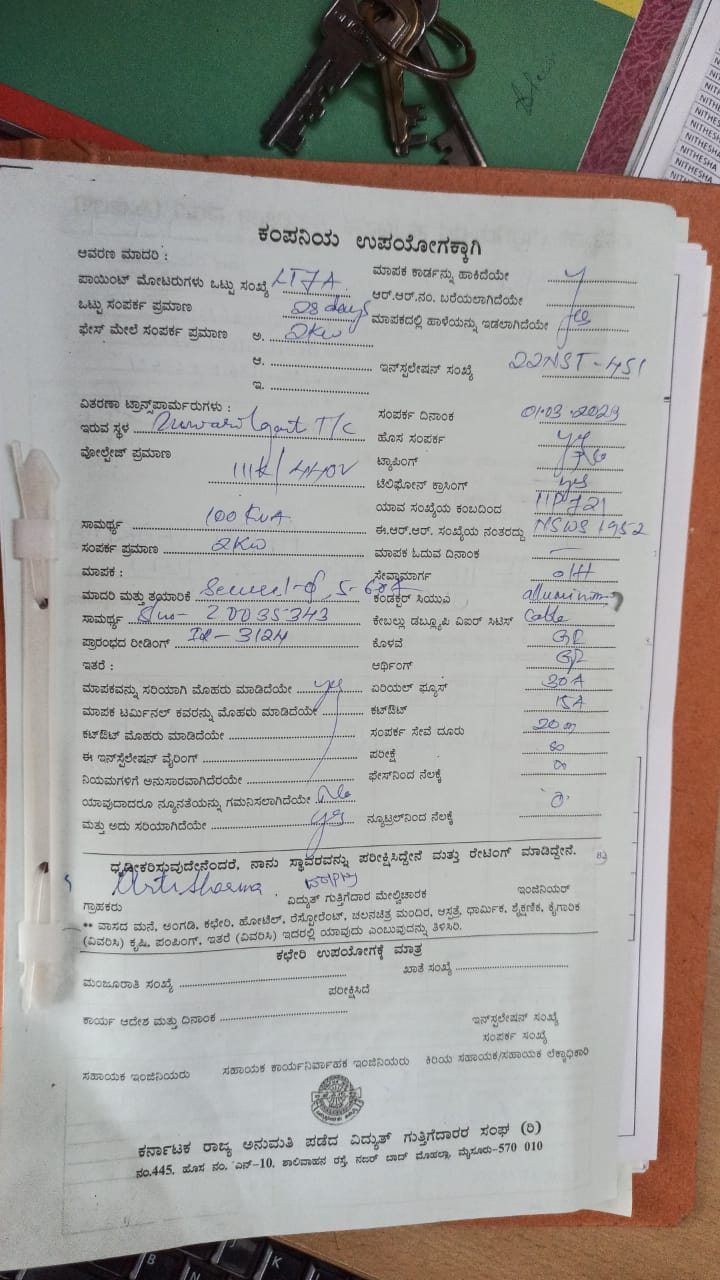 NITHESHA
NITHESHA
NITHESHA
NITHESHA
NITHESHA
ಕಂಪನಿಯ ಉಪಯೋಗಕ್ಕಾಗಿ
ಆವರಣ ಮಾದರಿ :
ಪಾಯಿಂಟ್ ಮೋಟರುಗಳು ಒಟ್ಟು ಸಂಖ್ಯೆ LT7A ಮಾಪಕ ಕಾರ್ಡನ್ನು ಹಾಕಿದೆಯೇ y
ಒಟ್ಟು ಸಂಪರ್ಕ ಪ್ರಮಾಣ 28 days ಆರ್.ಆರ್.ನಂ. ಬರೆಯಲಾಗಿದೆಯೇ
ಫೇಸ್ ಮೇಲೆ ಸಂಪರ್ಕ ಪ್ರಮಾಣ ಅ. 2KW ಮಾಪಕದಲ್ಲಿ ಹಾಳೆಯನ್ನು ಇಡಲಾಗಿದೆಯೇ yes
ಆ. ಇನ್‌ಸ್ಪಲೇಷನ್ ಸಂಖ್ಯೆ 22NST-451
ಇ.
ವಿತರಣಾ ಟ್ರಾನ್ಸ್‌ಪಾರ್ಮರುಗಳು :
ಇರುವ ಸ್ಥಳ T/C ಸಂಪರ್ಕ ದಿನಾಂಕ 01-03-2023
ವೋಲ್ಟೇಜ್ ಪ್ರಮಾಣ 11K/440V ಹೊಸ ಸಂಪರ್ಕ yes
ಟ್ಯಾಪಿಂಗ್
ಟೆಲಿಫೋನ್ ಕ್ರಾಸಿಂಗ್ yes
ಸಾಮರ್ಥ್ಯ 100 KVA ಯಾವ ಸಂಖ್ಯೆಯ ಕಂಬದಿಂದ
ಸಂಪರ್ಕ ಪ್ರಮಾಣ 2KW ಈ.ಆರ್.ಆರ್. ಸಂಖ್ಯೆಯ ನಂತರದ್ದು NSWS 1952
ಮಾಪಕ : ಮಾಪಕ ಓದುವ ದಿನಾಂಕ —
ಮಾದರಿ ಮತ್ತು ತಯಾರಿಕೆ ಸೇವಾಮಾರ್ಗ o/H
ಸಾಮರ್ಥ್ಯ Slno- 20035343 ಕಂಡಕ್ಟರ್ ಸಿಯುಎ alluminum
ಪ್ರಾರಂಭದ ರೀಡಿಂಗ್ 3124 ಕೇಬಲ್ಲು ಡಬ್ಲ್ಯೂಪಿ ವಿಐರ್ ಸಿಟಿಸ್ Cable
ಇತರೆ : ಕೊಳವೆ GI
ಆರ್ಥಿಂಗ್ GI
ಮಾಪಕವನ್ನು ಸರಿಯಾಗಿ ಮೊಹರು ಮಾಡಿದೆಯೇ yes ಏರಿಯಲ್ ಫ್ಯೂಸ್ 30A
ಮಾಪಕ ಟರ್ಮಿನಲ್ ಕವರನ್ನು ಮೊಹರು ಮಾಡಿದೆಯೇ ಕಟ್‌ಔಟ್ 15A
ಕಟ್‌ಔಟ್ ಮೊಹರು ಮಾಡಿದೆಯೇ ಸಂಪರ್ಕ ಸೇವೆ ದೂರು 20 m
ಈ ಇನ್‌ಸ್ಪೆಲೇಷನ್ ವೈರಿಂಗ್ ಪರೀಕ್ಷೆ
ನಿಯಮಗಳಿಗೆ ಅನುಸಾರವಾಗಿದೆರಯೇ ಫೇಸ್‌ನಿಂದ ನೆಲಕ್ಕೆ
ಯಾವುದಾದರೂ ನ್ಯೂನತೆಯನ್ನು ಗಮನಿಸಲಾಗಿದೆಯೇ No
ಮತ್ತು ಅದು ಸರಿಯಾಗಿದೆಯೇ yes ನ್ಯೂಟ್ರಲ್‌ನಿಂದ ನೆಲಕ್ಕೆ
ಧೃಡೀಕರಿಸುವುದೇನೆಂದರೆ, ನಾನು ಸ್ಥಾವರವನ್ನು ಪರೀಕ್ಷಿಸಿದ್ದೇನೆ ಮತ್ತು ರೇಟಿಂಗ್ ಮಾಡಿದ್ದೇನೆ.
Sharma
ಗ್ರಾಹಕರು ವಿದ್ಯುತ್ ಗುತ್ತಿಗೆದಾರ ಮೇಲ್ವಿಚಾರಕ ಇಂಜಿನಿಯರ್
** ವಾಸದ ಮನೆ, ಅಂಗಡಿ, ಕಛೇರಿ, ಹೋಟೆಲ್, ರೆಸ್ಟೋರೆಂಟ್, ಚಲನಚಿತ್ರ ಮಂದಿರ, ಆಸ್ಪತ್ರೆ, ಧಾರ್ಮಿಕ, ಶೈಕ್ಷಣಿಕ, ಕೈಗಾರಿಕ
(ವಿವರಿಸಿ) ಕೃಷಿ, ಪಂಪಿಂಗ್, ಇತರೆ (ವಿವರಿಸಿ) ಇದರಲ್ಲಿ ಯಾವುದು ಎಂಬುವುದನ್ನು ತಿಳಿಸಿರಿ.
ಕಛೇರಿ ಉಪಯೋಗಕ್ಕೆ ಮಾತ್ರ
ಮಂಜೂರಾತಿ ಸಂಖ್ಯೆ ಖಾತೆ ಸಂಖ್ಯೆ
ಪರೀಕ್ಷಿಸಿದೆ
ಕಾರ್ಯ ಆದೇಶ ಮತ್ತು ದಿನಾಂಕ ಇನ್‌ಸ್ಪಲೇಷನ್ ಸಂಖ್ಯೆ
ಸಂಪರ್ಕ ಸಂಖ್ಯೆ
ಸಹಾಯಕ ಇಂಜಿನಿಯರು ಸಹಾಯಕ ಕಾರ್ಯನಿರ್ವಾಹಕ ಇಂಜಿನಿಯರು ಕಿರಿಯ ಸಹಾಯಕ/ಸಹಾಯಕ ಲೆಕ್ಕಾಧಿಕಾರಿ
ಕರ್ನಾಟಕ ರಾಜ್ಯ ಅನುಮತಿ ಪಡೆದ ವಿದ್ಯುತ್ ಗುತ್ತಿಗೆದಾರರ ಸಂಘ (ರಿ)
ನಂ.445, ಹೊಸ ನಂ. ಎನ್-10, ಶಾಲಿವಾಹನ ರಸ್ತೆ, ನಜರ್ ಬಾದ್ ಮೊಹಲ್ಲಾ, ಮೈಸೂರು-570 010